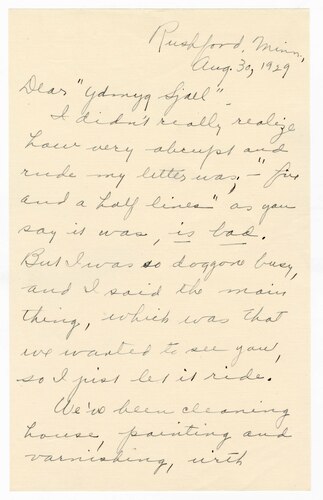 Rushford, Minn.,
Aug. 30, 1929
Dear "Ydmyg Sjael"-
I didn't really realize
how very abrupt and
rude my letter was, - "five
and a half lines" as you
say it was, is bad.
But I was so doggone busy,
and I said the main
thing, which was that
we wanted to see you,
so I just let it ride.
We've been cleaning
house, painting and
varnishing, with